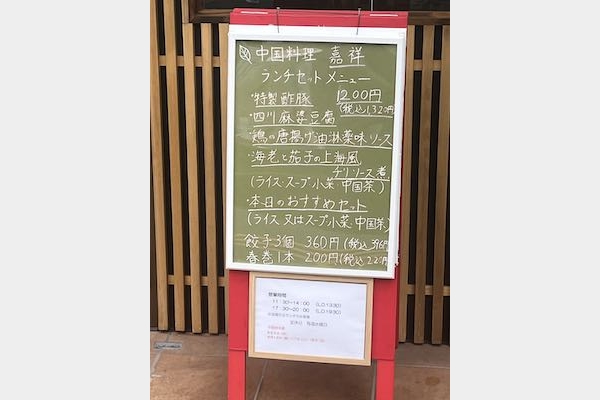 中国料理 嘉祥
ランチセットメニュー
・特製酢豚 1200円
(税込1320円)
・四川麻婆豆腐
・鶏の唐揚げ油淋薬味ソース
・海老と茄子の上海風
チリソース煮
(ライス・スープ 小菜 中国茶)
・本日のおすすめセット
(ライス 又はスープ 小菜 中国茶)
餃子3個 360円(税込396円)
春巻1本 200円(税込220円)
営業時間
11:30~14:00 (LO1330)
17:30~20:00 (LO1930)